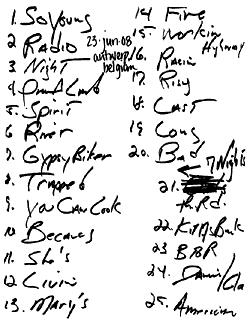 1. So Young
2 Radio
3. Night
23-jun-08
antwerp/
belgium
5. Spirit
6 River
7. Gypsy Biker
8. Trapped
9. You Can Look
10 Because
11. She's
12 Livin
13. Mary's
14 Fire
15. Workin
Highway
16. Racin
17. Risg
18. Last
19 Long
20. Bad
7 Nights
21.
Th. Rd.
22.
23 BBR
24.
25. American